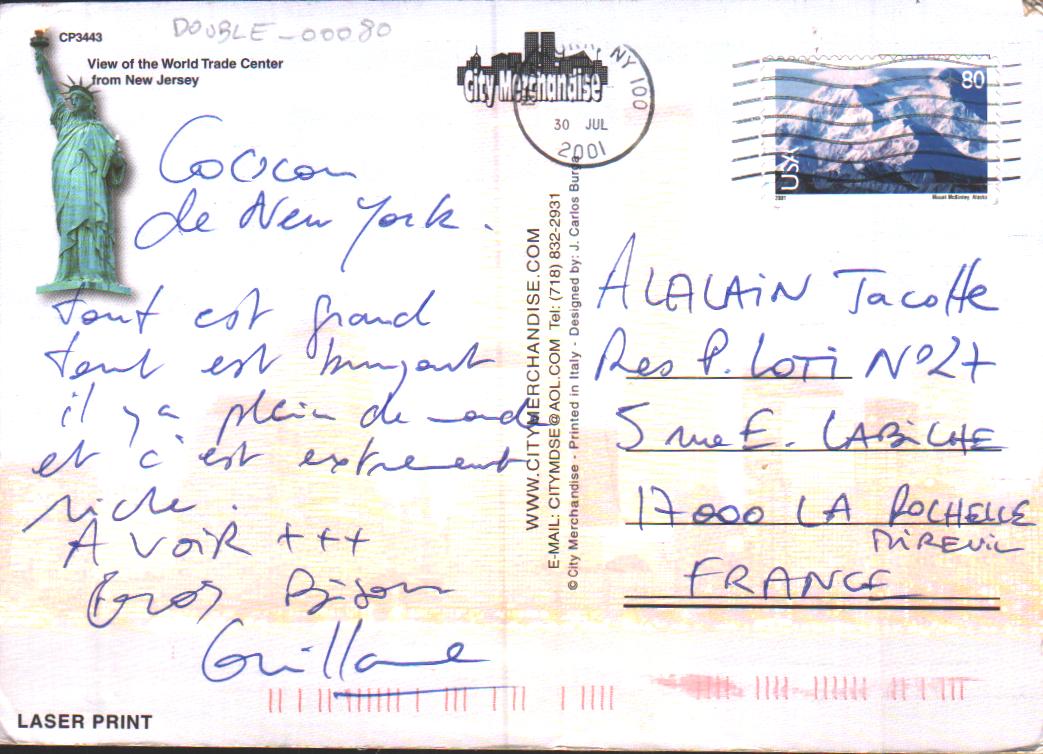 DOUBLE-00080
CP3443
View of the World Trade Center
from New Jersey
City Merchandise
NY 100
30 JUL
2001
80
USA
2001
Mount McKinley, Alaska
Coucou
de New York.
tout est grand
tout est bruyant
il y a plein de monde
et c'est extrement
riche.
A VOIR +++
Gros Bisou
Guillaume
WWW.CITYMERCHANDISE.COM
E-MAIL: CITYMDSE@AOL.COM Tel: (718) 832-2931
© City Merchandise - Printed in Italy - Designed by: J. Carlos Burga
ALALAIN Jacotte
Res P. LOTI N°27
5 rue E. LABICHE
17000 LA ROCHELLE
MIREUIL
FRANCE
LASER PRINT